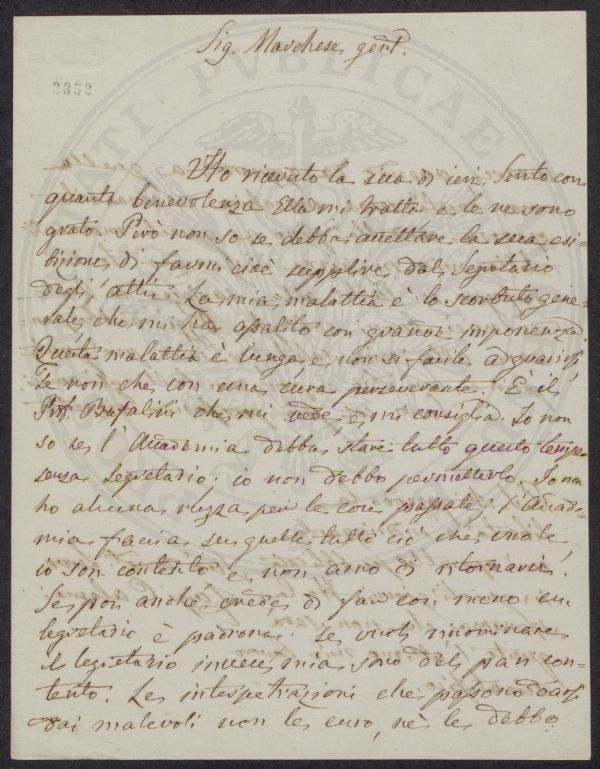 Sig. Marchese gent.
2352
Ho ricevuto la sua di ieri. Sento con
quanta benevolenza Ella mi tratta e le ne sono
grato. Però non so se debba accettare la sua esi-
bizione di farmi cioè supplire dal Segretario
degli atti. La mia malattia è lo scorbuto gene-
rale, che mi ha assalito con imponenza.
Questa malattia è lunga e non si facile a guarirsi
se non che con una cura perseverante. È il
Prof. Bufalini che mi vede, e mi consiglia. Io non
so se l'Accademia debba stare tutto questo tempo
senza Segretario; io non debbo permetterlo. Io non
ho alcuna per le cose passate; l'Accade-
mia faccia su quelle tutto ciò che vuole,
io son contento e non amo di ritornarvi.
Se poi anche crede di far con meno un
segretario è padrona. Se vuol rinominare
il segretario invece mia sono del pari con-
tento. Le interpetrazioni che possono darsi
dai malevoli non le curo, nè le debbo